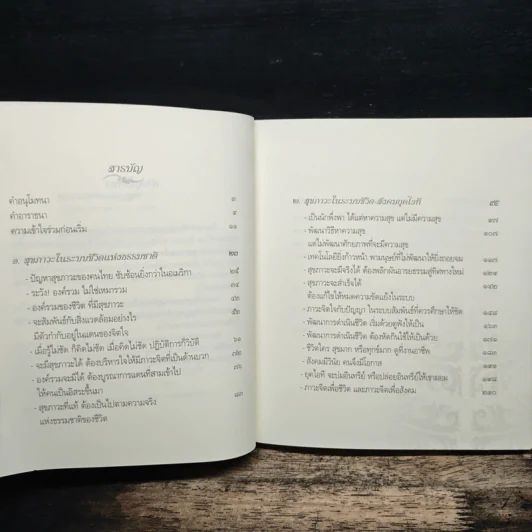 สารบัญ
คำอนุโมทนา ๓
คำอาราธนา ๔
ความเข้าใจร่วมก่อนเริ่ม ๑๑
๑. สุขภาวะในระบบชีวิตแห่งธรรมชาติ ๒๓
- ปัญหาสุขภาวะของคนไทย ซับซ้อนยิ่งกว่าในอเมริกา ๒๕
- ระวัง! องค์รวม ไม่ใช่เหมารวม
- องค์รวมของชีวิต ที่มีสุขภาวะ
- จะสัมพันธ์กับสิ่งแวดล้อมอย่างไร
มีตัวกำกับอยู่ในแดนของจิตใจ
- เมื่อรู้ไม่ชัด ก็คิดไม่ชัด เมื่อคิดไม่ชัด ปฏิบัติการก็วิบัติ
- จะมีสุขภาวะได้ ต้องบริหารใจให้มีภาวะจิตที่เป็นด้านบวก
- องค์รวมจะมีได้ ต้องบูรณาการแดนที่สามเข้าไป
ให้คนเป็นอิสระขึ้นมา
- สุขภาวะที่แท้ ต้องเป็นไปตามความจริง
แห่งธรรมชาติของชีวิต
๒. สุขภาวะในระบบชีวิต-สังคมยุคไอที
- เป็นนักพึ่งพา ได้แต่หาความสุข แต่ไม่มีความสุข ๙๗
- พัฒนาวิธีหาความสุข
แต่ไม่พัฒนาศักยภาพที่จะมีความสุข ๑๐๗
- เทคโนโลยียิ่งก้าวหน้า พามนุษย์ที่ไม่พัฒนาให้ยิ่งถอยจม
- สุขภาวะจะมีจริงได้ ต้องพลิกผันอารยธรรมสู่ทิศทางใหม่
- สุขภาวะจะสำเร็จได้
ต้องแก้ไขให้หมดความขัดแย้งในระบบ
- ภาวะจิตใจกับปัญญา ในระบบสัมพันธ์ที่ควรศึกษาให้ชัด
- พัฒนาการดำเนินชีวิต เริ่มด้วยดูฟังให้เป็น
- พัฒนาการดำเนินชีวิต ต้องหัดกินใช้ให้เป็นด้วย
- ชีวิตใคร สุขมาก หรือทุกข์มาก ดูที่งานอาชีพ
- สังคมมีวินัย คนจึงมีโอกาส
- ยุคไอที จะบ่มอินทรีย์ หรือปล่อยอินทรีย์ให้เขามอม
- ภาวะจิตเพื่อชีวิต และภาวะจิตเพื่อสังคม